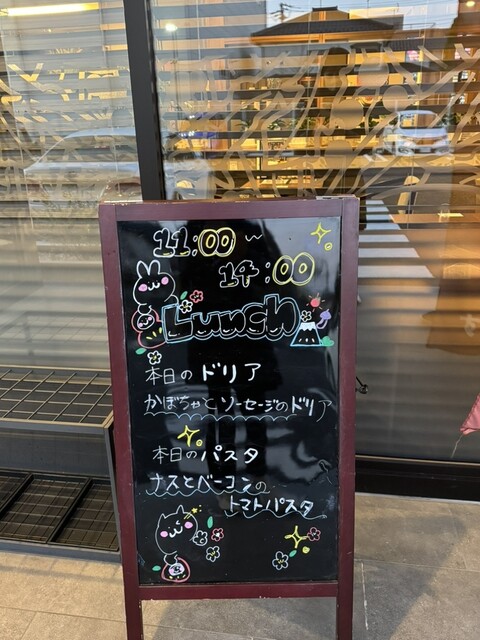 11:00 ~
14:00
Lunch
本日のドリア
かぼちゃとソーセージのドリア
本日のパスタ
ナスとベーコンの
トマトパスタ